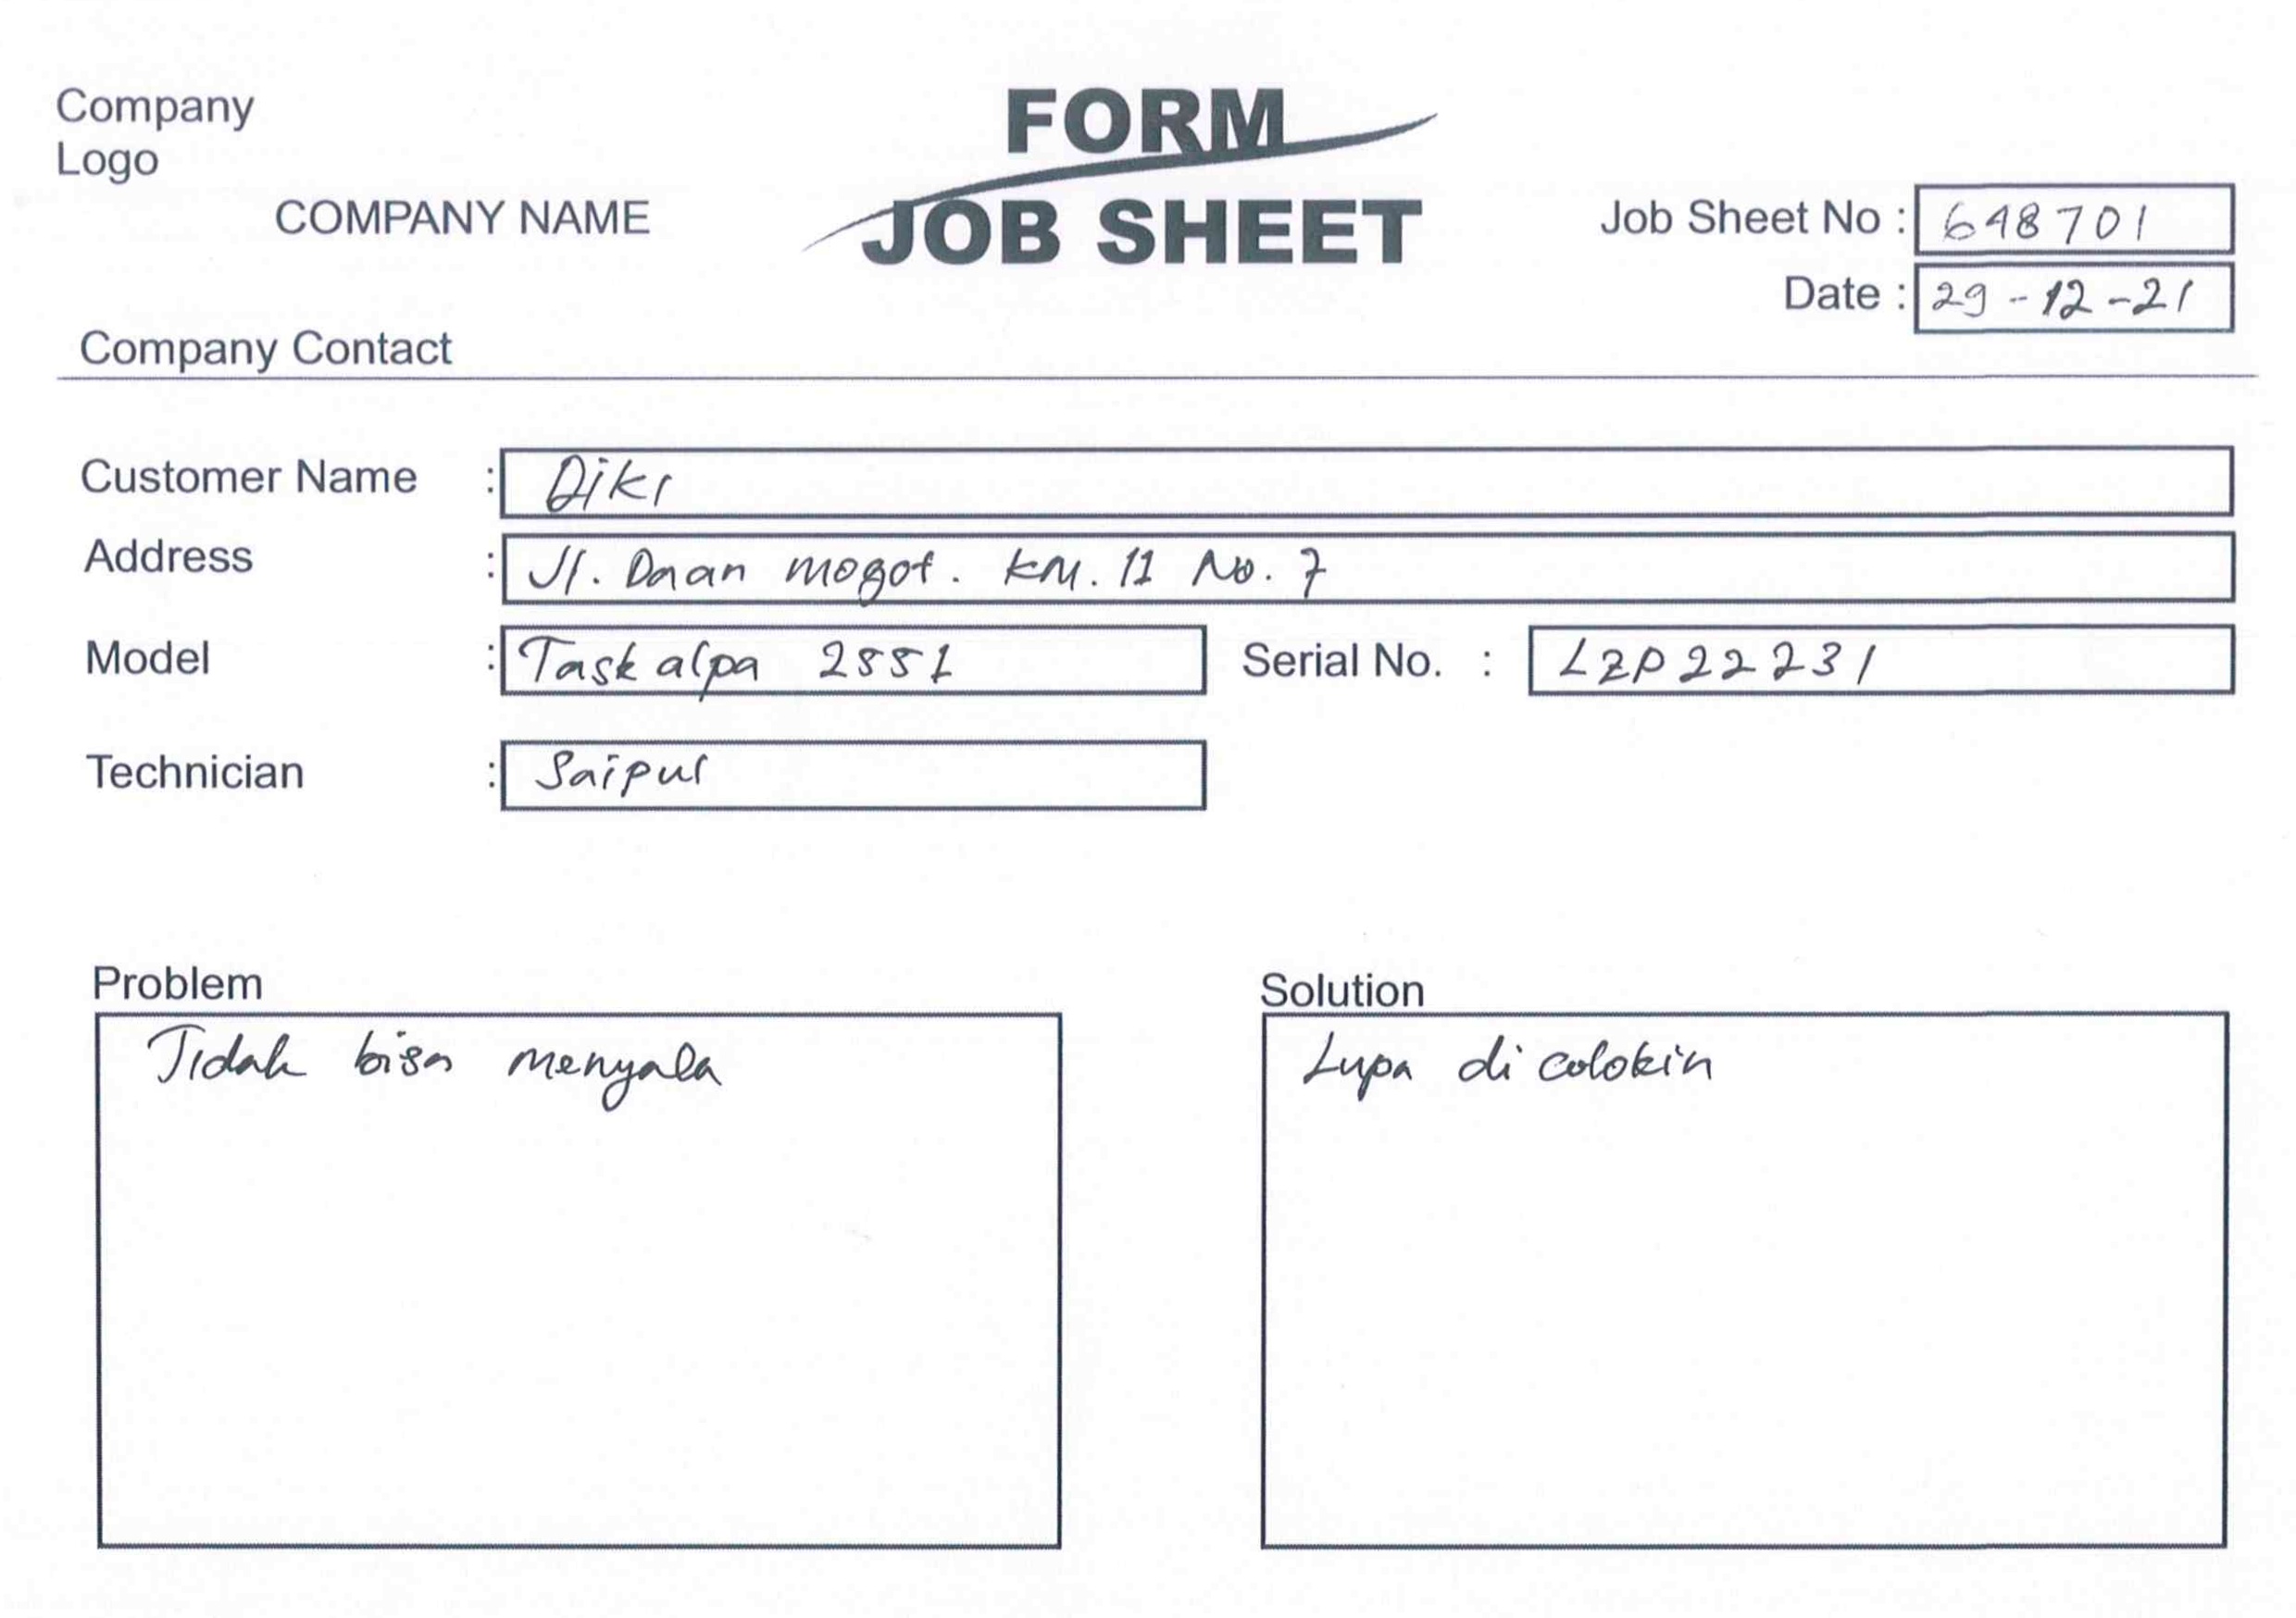 Company
Logo
COMPANY NAME
FORM
JOB SHEET
Job Sheet No : 648701
Date : 29-12-21
Company Contact
Customer Name : Diki
Address : Jl. Daan mogot. KM. 11 No. 7
Model : Task alpa 2551 Serial No. : LZP22231
Technician : Saipul
Problem
Tidak bisa menyala
Solution
Lupa di colokin